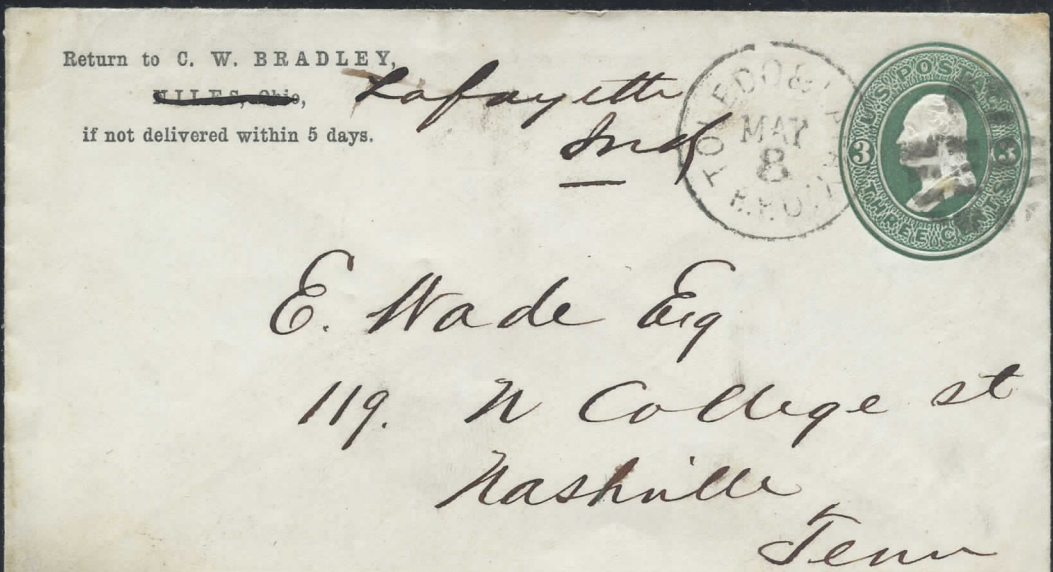 Return to C. W. BRADLEY,
NILES, Ohio,
if not delivered within 5 days.
Lafayette
Ind
TOLEDO & LA
MAY
8
R.P.O.
U.S. POSTAGE
3 3
THREE CENTS
E. Wade Esq
119. N College st
Nashville
Tenn